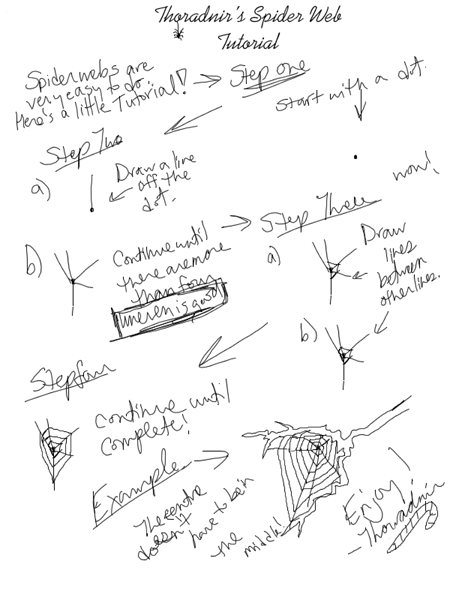 Thoradnir's Spider Web
Tutorial
Spiderwebs are
very easy to do.
Here's a little Tutorial!
Step one
Start with a dot.
Step Two
a)
Draw a line
off the
dot.
now!
b)
Continue until
there are more
than four
uneven is good
Step Three
a)
Draw
lines
between
other lines.
b)
Step four
Continue until
Complete!
Example
The centre
doesn't
have to be in
the middle!
Enjoy
-Thoradnir